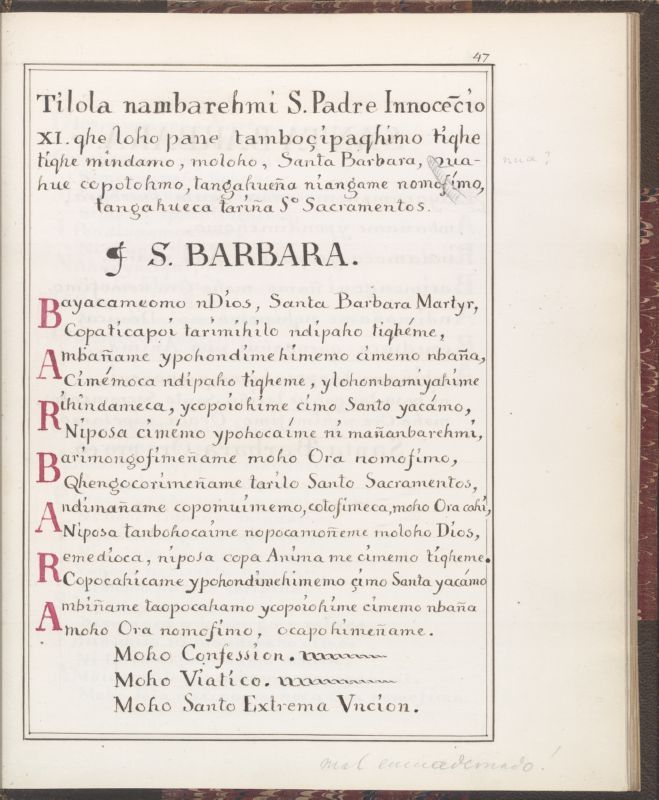 47
Tilola nambarehmi S. Padre Innocēcio
XI. qhe loho pane tamboçipaqhimo tiqhe
tiqhe mindamo, moloho, Santa Barbara, nua-
hue copotohmo, tangahueña niangame nomosimo,
tangahueca tariña S.º Sacramentos.
nua?
¶ S. BARBARA.
Bayacameomo nDios, Santa Barbara Martyr,
Copaticapoi tarimihilo ndipaho tiqhéme,
Ambañame ypohondimehimemo cimemo nbaña,
Cimémoca ndipaho tiqheme, ylohombamiyahime
Rihindameca, ycopoiohime cimo Santo yacámo,
Niposa cimémo ypohocaíme ni mañanbarehmi,
Barimongosimeñame moho Ora nomosimo,
Qhengocorimeñame tarilo Santo Sacramentos,
Andimañame copomuimemo, cotosimeca, moho Ora cahi,
Niposa tanbohocaime nopocamoñeme moloho Dios,
Remedioca, niposa copa Anima me cimemo tiqheme.
Copocahicame ypohondimehimemo çimo Santa yacámo
Ambiñame taopocahamo ycopoiohime cimemo nbaña
Amoho Ora nomosimo, ocapohimeñame.
Moho Confession.
Moho Viatico.
Moho Santo Extrema Vncion.
mal encuadernado!